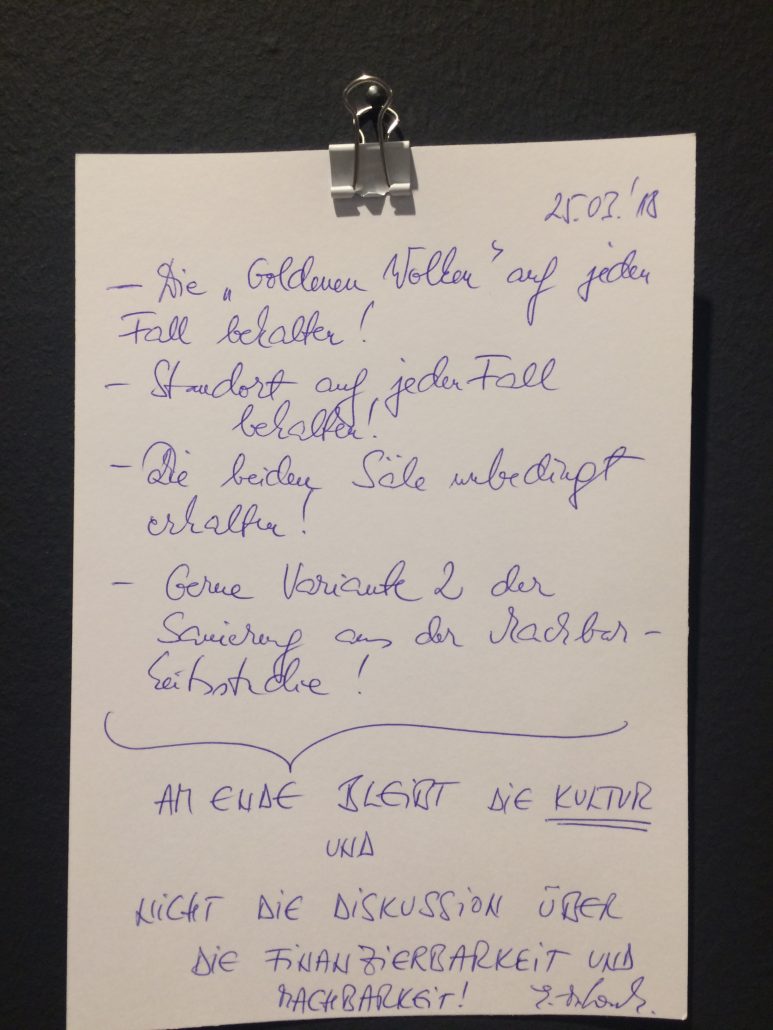 25.03.'18
– Die „Goldenen Wolken" auf jeden
Fall behalten!
– Standort auf jeden Fall
behalten!
– Die beiden Säle unbedingt
erhalten!
– Gerne Variante 2 der
Sanierung aus der Machbar-
keitsstudie!
AM ENDE BLEIBT DIE KULTUR
UND
NICHT DIE DISKUSSION ÜBER
DIE FINANZIERBARKEIT UND
MACHBARKEIT!